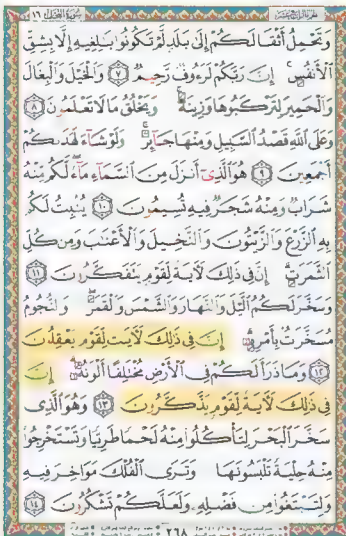 سُورَةُ النَّحْلِ ١٦
وَتَحْمِلُ أَثْقَالَكُمْ إِلَىٰ بَلَدٍ لَّمْ تَكُونُوا بَالِغِيهِ إِلَّا بِشِقِّ
الْأَنفُسِ ۚ إِنَّ رَبَّكُمْ لَرَءُوفٌ رَّحِيمٌ ٧ وَالْخَيْلَ وَالْبِغَالَ
وَالْحَمِيرَ لِتَرْكَبُوهَا وَزِينَةً ۚ وَيَخْلُقُ مَا لَا تَعْلَمُونَ ٨
وَعَلَى اللَّهِ قَصْدُ السَّبِيلِ وَمِنْهَا جَائِرٌ ۚ وَلَوْ شَاءَ لَهَدَاكُمْ
أَجْمَعِينَ ٩ هُوَ الَّذِي أَنزَلَ مِنَ السَّمَاءِ مَاءً ۖ لَّكُم مِّنْهُ
شَرَابٌ وَمِنْهُ شَجَرٌ فِيهِ تُسِيمُونَ ١٠ يُنبِتُ لَكُم
بِهِ الزَّرْعَ وَالزَّيْتُونَ وَالنَّخِيلَ وَالْأَعْنَابَ وَمِن كُلِّ
الثَّمَرَاتِ ۗ إِنَّ فِي ذَٰلِكَ لَآيَةً لِّقَوْمٍ يَتَفَكَّرُونَ ١١
وَسَخَّرَ لَكُمُ اللَّيْلَ وَالنَّهَارَ وَالشَّمْسَ وَالْقَمَرَ ۖ وَالنُّجُومُ
مُسَخَّرَاتٌ بِأَمْرِهِ ۗ إِنَّ فِي ذَٰلِكَ لَآيَاتٍ لِّقَوْمٍ يَعْقِلُونَ
١٢ وَمَا ذَرَأَ لَكُمْ فِي الْأَرْضِ مُخْتَلِفًا أَلْوَانُهُ ۗ إِنَّ
فِي ذَٰلِكَ لَآيَةً لِّقَوْمٍ يَذَّكَّرُونَ ١٣ وَهُوَ الَّذِي
سَخَّرَ الْبَحْرَ لِتَأْكُلُوا مِنْهُ لَحْمًا طَرِيًّا وَتَسْتَخْرِجُوا
مِنْهُ حِلْيَةً تَلْبَسُونَهَا وَتَرَى الْفُلْكَ مَوَاخِرَ فِيهِ
وَلِتَبْتَغُوا مِن فَضْلِهِ وَلَعَلَّكُمْ تَشْكُرُونَ ١٤
٢٦٨